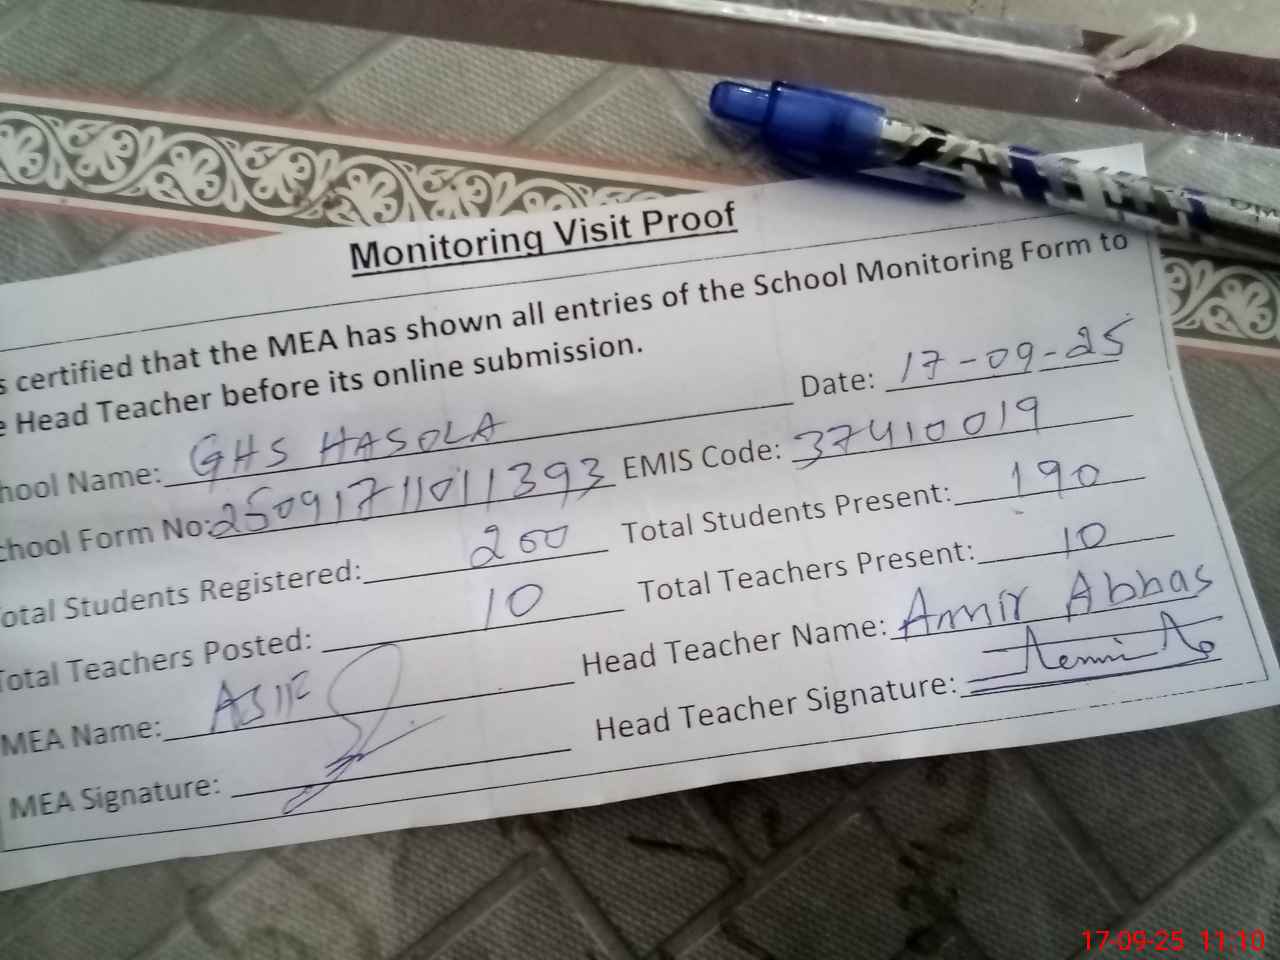 Monitoring Visit Proof
s certified that the MEA has shown all entries of the School Monitoring Form to
e Head Teacher before its online submission.
Date: 17-09-25
hool Name: GHS HASOLA
EMIS Code: 37410019
chool Form No: 25091711011393
Total Students Present: 190
otal Students Registered: 200
Total Teachers Present: 10
Total Teachers Posted: 10
Head Teacher Name: Amir Abbas
MEA Name: ASIF
Head Teacher Signature:
MEA Signature:
17-09-25 11:10